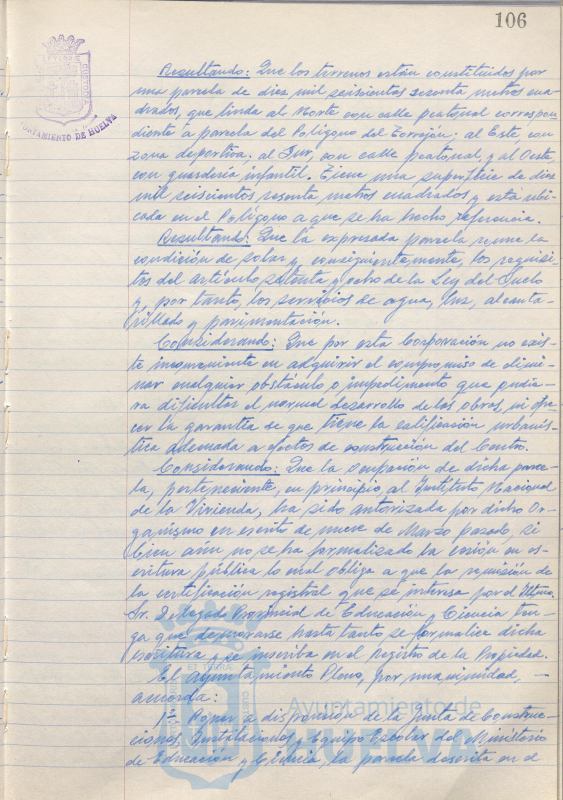 106
AYUNTAMIENTO DE HUELVA
Resultando: Que los terrenos están constituidos por
una parcela de diez mil seiscientos sesenta metros cua-
drados, que linda al Norte con calle peatonal correspon-
diente a parcela del Polígono del Torrejón; al Este, con
zona deportiva. al Sur, con calle peatonal, y al Oeste,
con guardería infantil. Tiene una superficie de diez
mil seiscientos sesenta metros cuadrados y está ubi-
cada en el Polígono a que se ha hecho referencia.
Resultando: Que la expresada parcela reune la
condición de solar y, consiguientemente, los requisi-
tos del artículo setenta y ocho de la Ley del Suelo
y, por tanto, los servicios de agua, luz, alcanta-
rillado y pavimentación.
Considerando: Que por esta Corporación no exis-
te inconveniente en adquirir el compromiso de elimi-
nar cualquier obstáculo o impedimento que pudie-
ra dificultar el normal desarrollo de las obras, ni ofre-
cer la garantía de que tiene la calificación urbanís-
tica adecuada a efectos de construcción del Centro.
Considerando: Que la ocupación de dicha parce-
la, perteneciente, en principio, al Instituto Nacional
de la Vivienda, ha sido autorizada por dicho Or-
ganismo en escrito de nueve de Marzo pasado, si
bien aún no se ha formalizado la cesión en es-
critura pública lo cual obliga a que la remisión de
la certificación registral que se interesa por el Iltmo.
Sr. Delegado Provincial de Educación y Ciencia ten-
ga que demorarse hasta tanto se formalice dicha
escritura y se inscriba en el Registro de la Propiedad.
El Ayuntamiento Pleno, por unanimidad, —
acuerda:
1º. Poner a disposición de la Junta de Construc-
ciones, Instalaciones y Equipo Escolar del Ministerio
de Educación y Ciencia, la parcela descrita en el
Ayuntamiento de
HUELVA